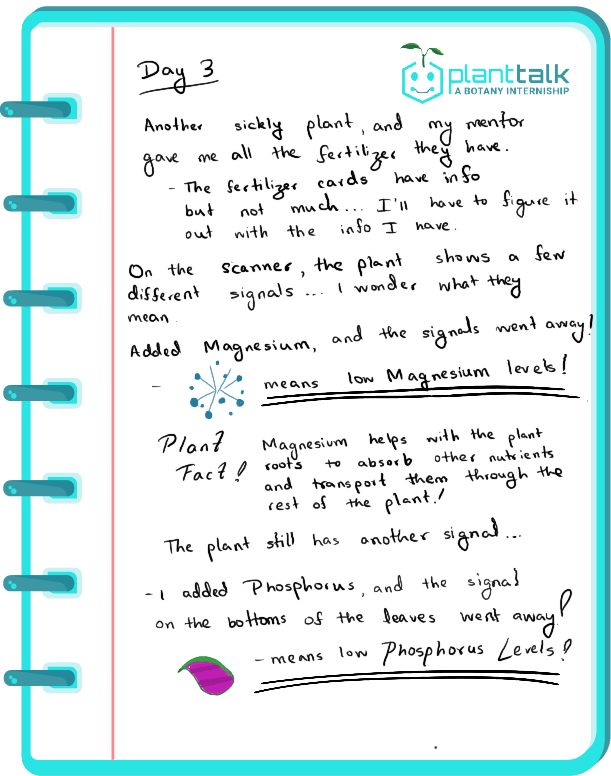 Day 3
planttalk
A BOTANY INTERNISHIP
Another sickly plant, and my mentor
gave me all the fertilizer they have.
- The fertilizer cards have info
but not much... I'll have to figure it
out with the info I have.
On the scanner, the plant shows a few
different signals... I wonder what they
mean.
Added Magnesium, and the signals went away!
- means low Magnesium levels!
Plant Magnesium helps with the plant
Fact! roots to absorb other nutrients
and transport them through the
rest of the plant!
The plant still has another signal...
- I added Phosphorus, and the signal
on the bottoms of the leaves went away!
- means low Phosphorus Levels!